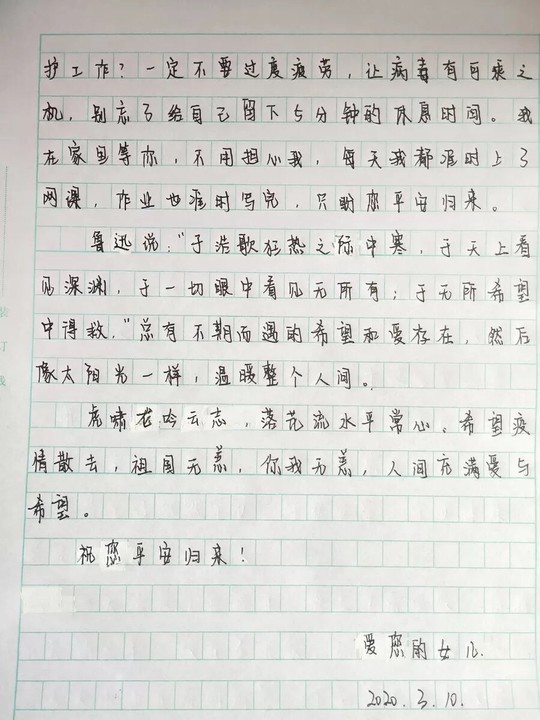 护工作？一定不要过度疲劳，让病毒有可乘之
机，别忘了给自己留下5分钟的休息时间。我
在家里等你，不用担心我，每天我都准时上了
网课，作业也准时写完，只盼您平安归来。
鲁迅说："于浩歌狂热之际中寒，于天上看
见深渊，于一切眼中看见无所有；于无所希望
中得救。"总有不期而遇的希望和爱存在，然后
像太阳光一样，温暖整个人间。
虎啸龙吟云志，落花流水平常心、希望疫
情散去，祖国无恙，你我无恙，人间充满爱与
希望。
祝您平安归来！
爱您的女儿.
2020.3.10.